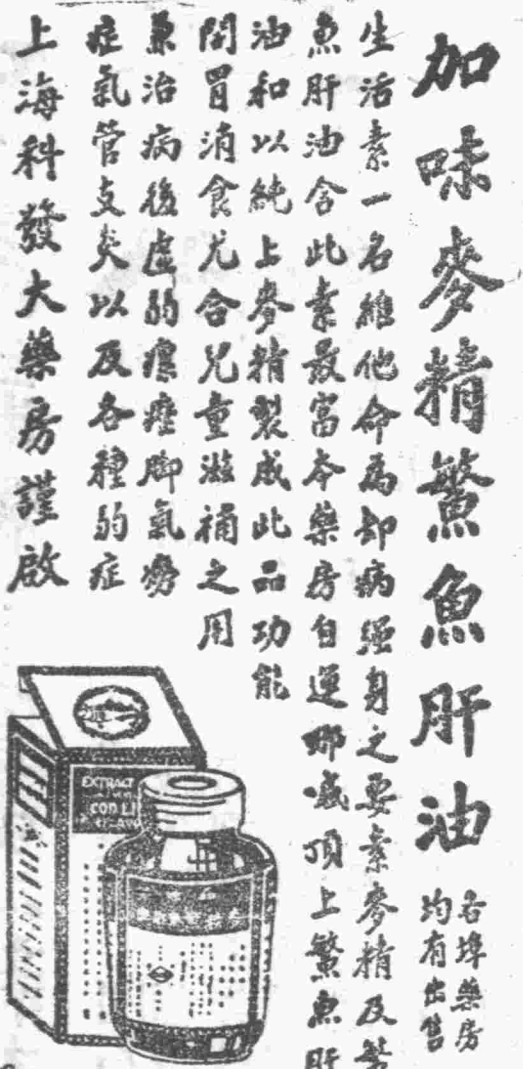 加味麥精鰵魚肝油
各埠藥房
均有出售
生活素一名維他命為却病强身之要素麥精及鰵
魚肝油含此素最富本藥房自運哪嘁頂上鰵魚肝
油和以純上麥精製成此品功能
開胃消食尤合兒童滋補之用
兼治病後虛弱瘰癧脚氣癆
症氣管支炎以及各種弱症
上海科發大藥房謹啟
EXTRACT
COD LI